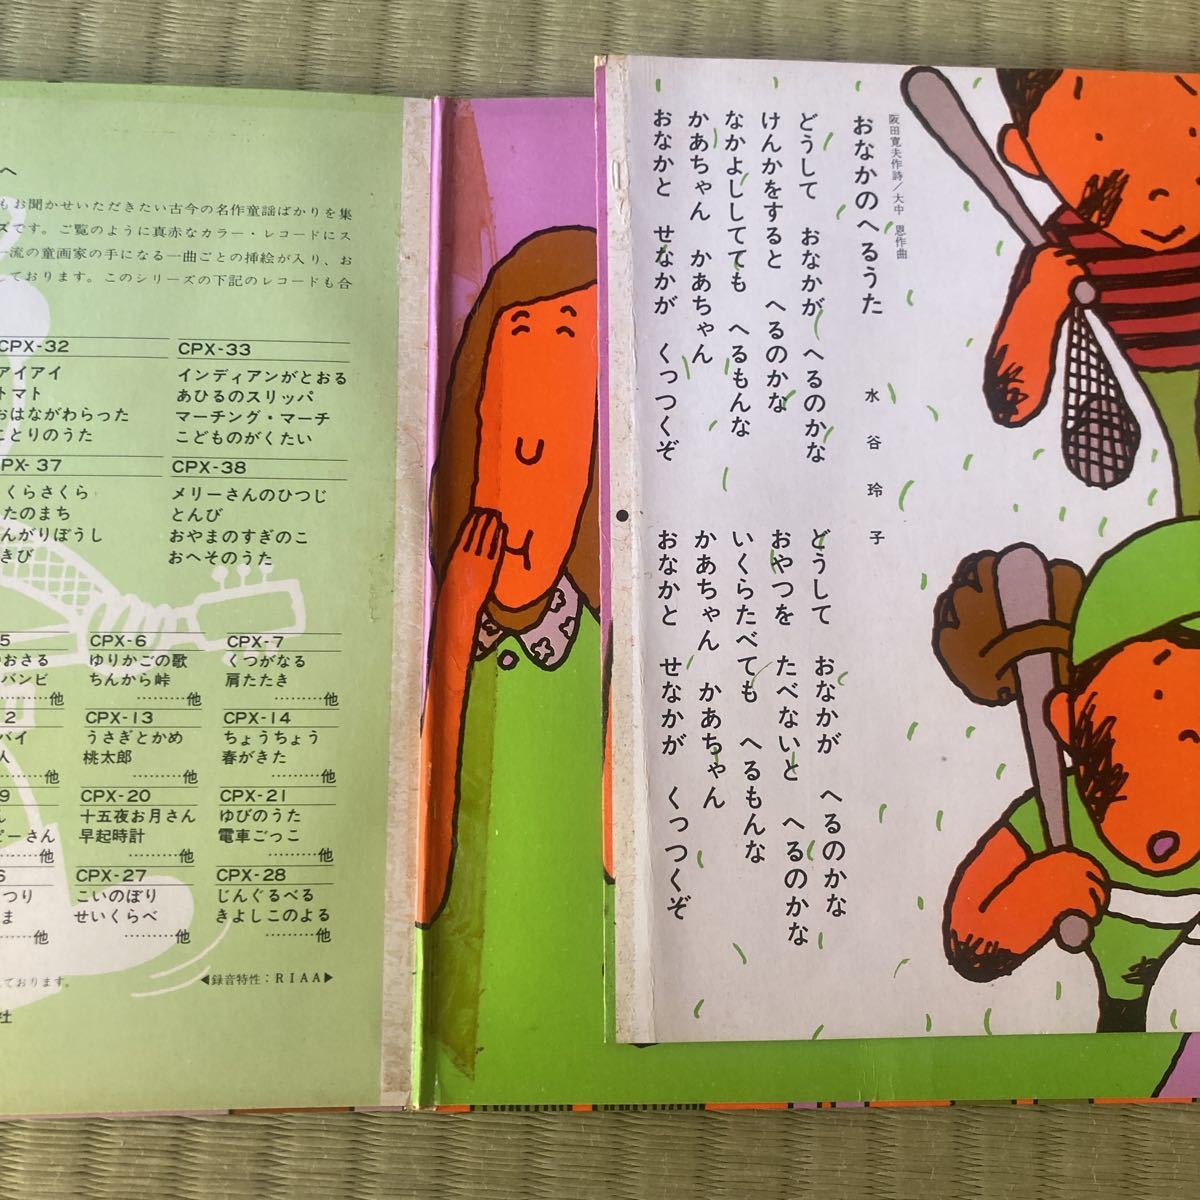 へ
もお聞かせいただきたい古今の名作童謡ばかりを集
ズです。ご覧のように真赤なカラー・レコードにス
一流の童画家の手になる一曲ごとの挿絵が入り、お
しております。このシリーズの下記のレコードも合
CPX-32
アイアイ
トマト
おはながわらった
ことりのうた
CPX-33
インディアンがとおる
あひるのスリッパ
マーチング・マーチ
こどものがくたい
CPX-37
くらさくら
たのまち
んがりぼうし
きび
CPX-38
メリーさんのひつじ
とんび
おやまのすぎのこ
おへそのうた
5
おさる
バンビ
………他
CPX-6
ゆりかごの歌
ちんから峠
………他
CPX-7
くつがなる
肩たたき
………他
2
バイ
人
………他
CPX-13
うさぎとかめ
桃太郎
………他
CPX-14
ちょうちょう
春がきた
………他
9
ん
ピーさん
………他
CPX-20
十五夜お月さん
早起時計
………他
CPX-21
ゆびのうた
電車ごっこ
………他
6
つり
ま
………他
CPX-27
こいのぼり
せいくらべ
………他
CPX-28
じんぐるべる
きよしこのよる
………他
ております。
◀録音特性：RIAA▶
社
阪田寛夫作詩／大中 恩作曲
おなかのへるうた
水谷玲子
どうして おなかが へるのかな
けんかをすると へるのかな
なかよししてても へるもんな
かあちゃん かあちゃん
おなかと せなかが くっつくぞ
どうして おなかが へるのかな
おやつを たべないと へるのかな
いくらたべても へるもんな
かあちゃん かあちゃん
おなかと せなかが くっつくぞ